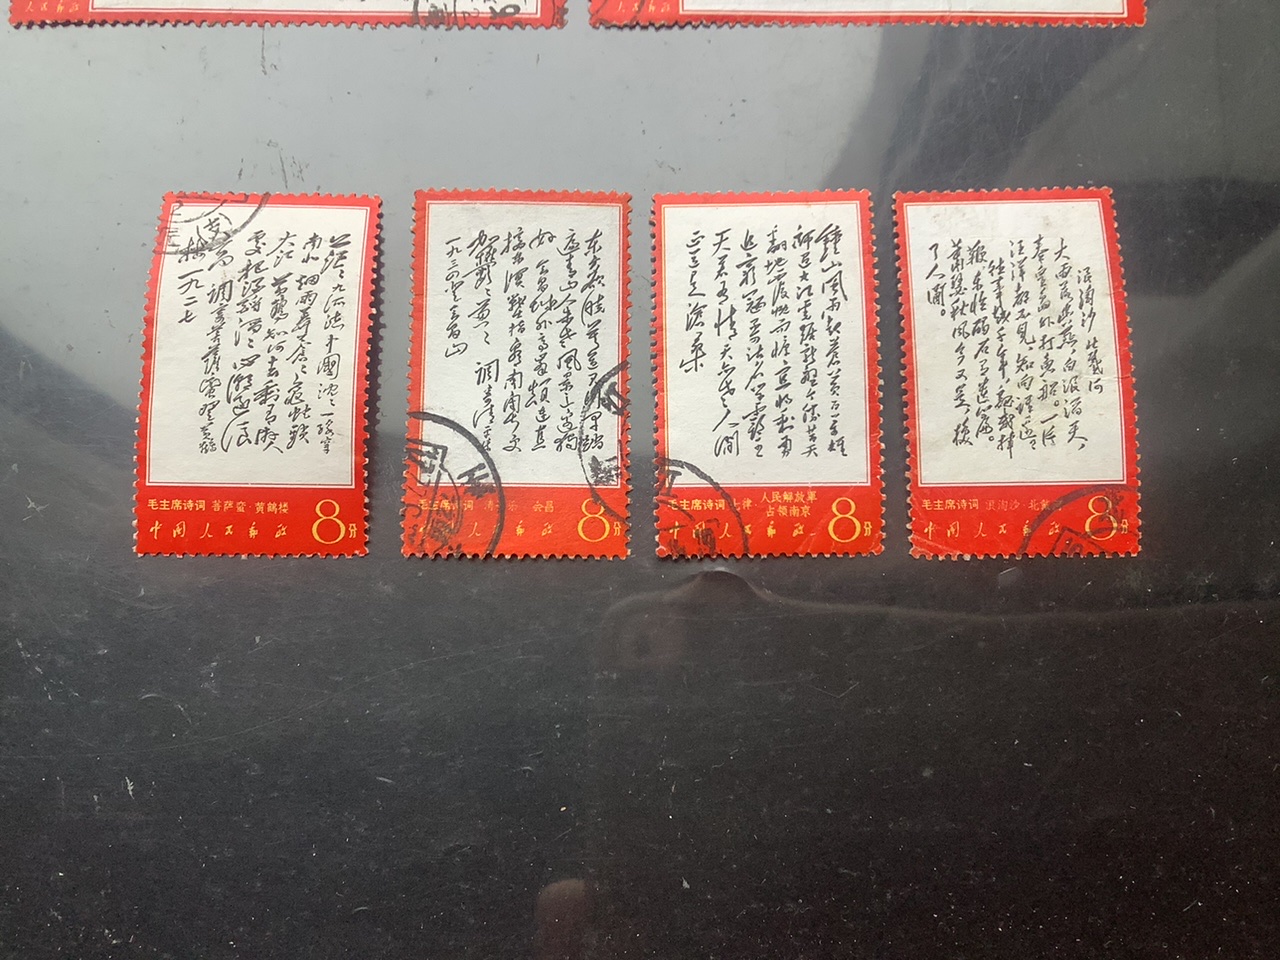 人民邮政
茫茫九派流中國沉沉一线穿
南北烟雨莽苍苍龟蛇锁
大江 黄鹤知何去剩有游人
处把酒酹滔滔心潮逐浪
高 调寄菩萨蛮 登黄鹤
楼 一九二七
毛主席诗词 菩萨蛮·黄鹤楼
中国人民邮政
8分
东方欲晓莫道君行早踏
遍青山人未老风景这边独
好 会昌城外高峰颠连直
接东溟战士指看南粤更
加郁郁葱葱 调寄清平乐
一九三四年登会昌山
毛主席 词 清 会昌
人民邮政
8分
鍾山風雨起蒼黄百萬雄
師过大江虎踞龍盤今勝昔天
翻地覆慨而慷宜将剩勇
追窮寇不可沽名学霸王
天若有情天亦老人間
正道是滄桑
毛主席诗词 七律·人民解放軍
占领南京
中国人民邮政
8分
浪淘沙 北戴河
大雨落幽燕,白浪滔天,
秦皇岛外打鱼船。一片
汪洋都不见,知向谁边
往事越千年,魏武挥
鞭,东临碣石有遗篇。
萧瑟秋风今又是,换
了人间。
毛主席诗词 浪淘沙·北戴
中国人民邮政
8分